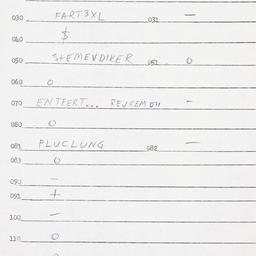 030 FART3XL 031 —
040 $
050 SHEMEVDIKER 051 0
060 0
070 ENTFERT... REJCEM 071 -
080 0
081 PLUCLUNG 082 —
083 0
090 —
091 +
100 —
110 0